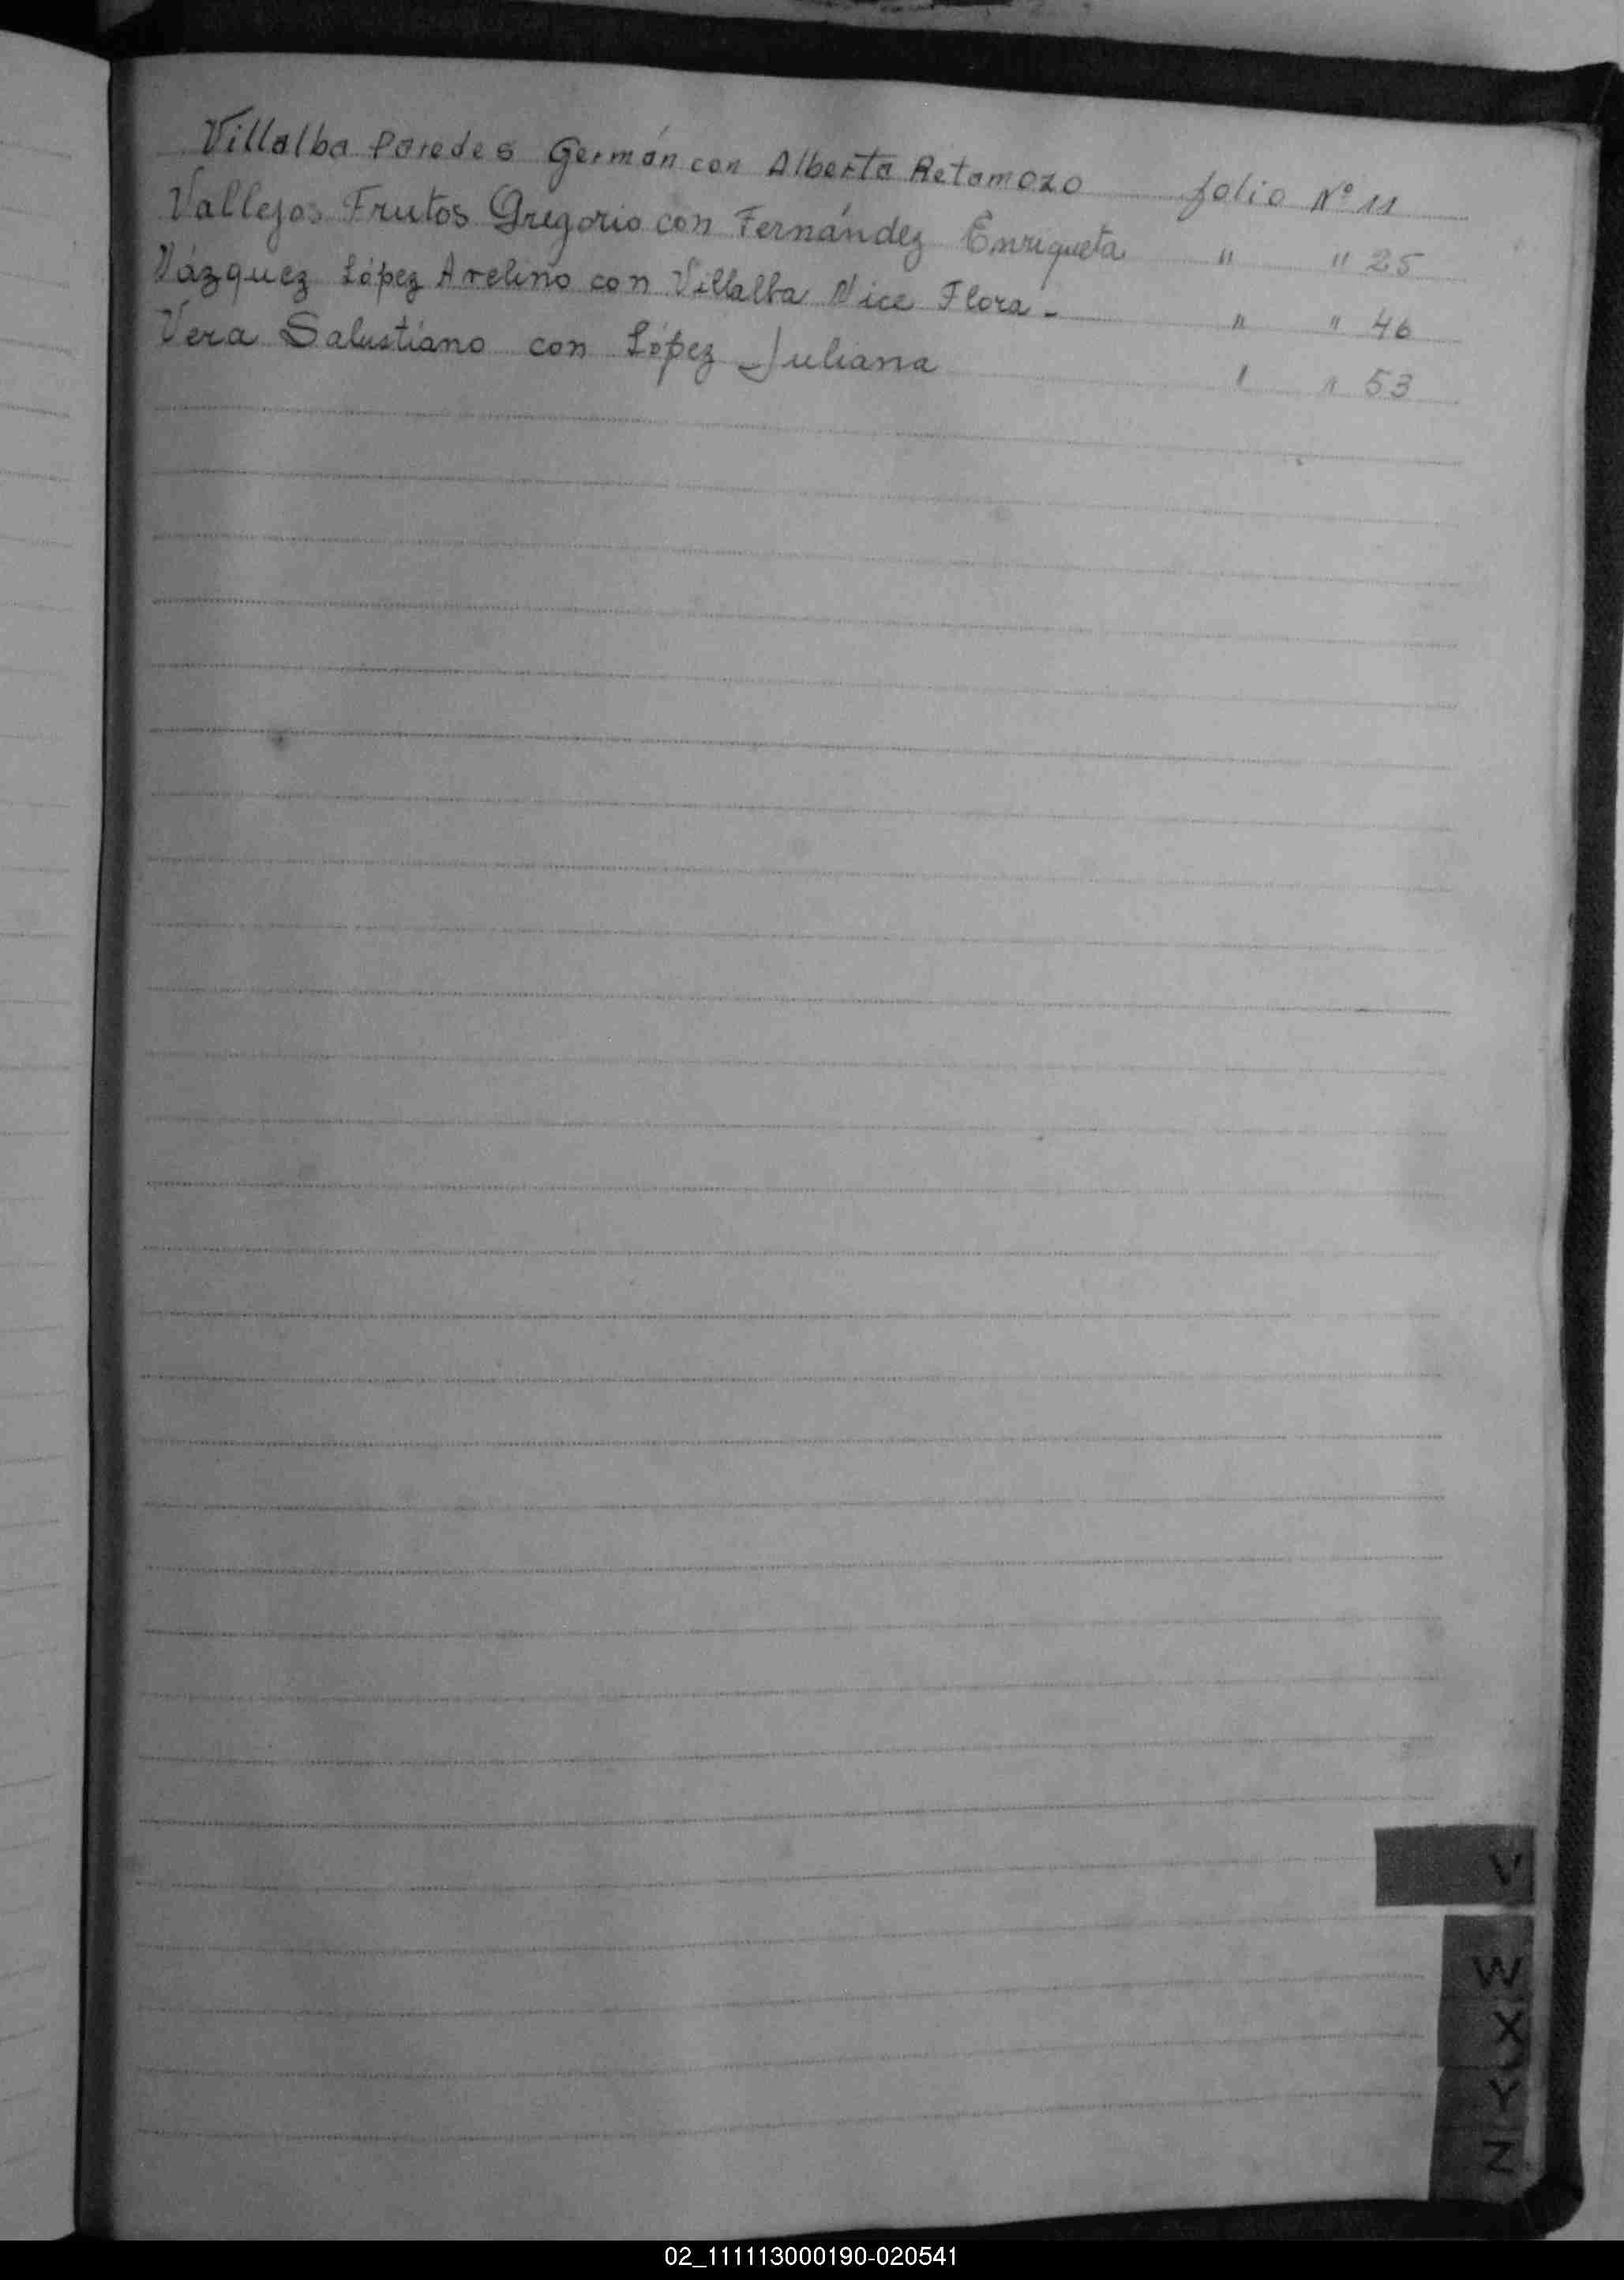 Villalba Paredes Germán con Alberta Retamozo folio Nº 11
Vallejos Frutos Gregorio con Fernández Enriqueta " " 25
Vázquez López Avelino con Villalba Nice Flora - " " 46
Vera Salustiano con López Juliana " " 53
V
W
X
Y
Z
02_111113000190-020541